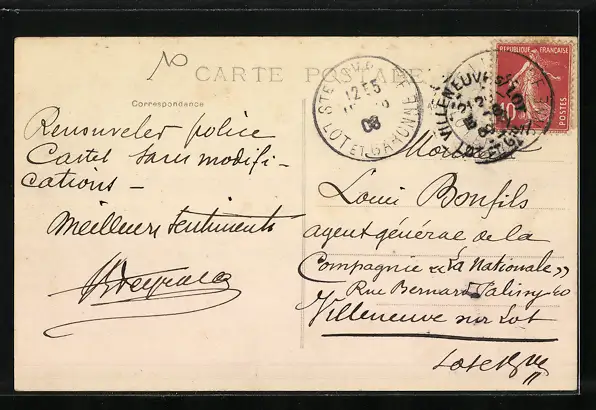 CARTE POSTALE
Correspondance
Renouveler police
Castel sans modifi-
cations —
Meilleurs sentiments
12E5
08
LOT ET GARONNE
VILLENEUVE S LOT
RÉPUBLIQUE FRANÇAISE
10
POSTES
Monsieur
Louis Bonfils
agent général de la
Compagnie « La Nationale »
Rue Bernard Palissy 20
Villeneuve sur Lot